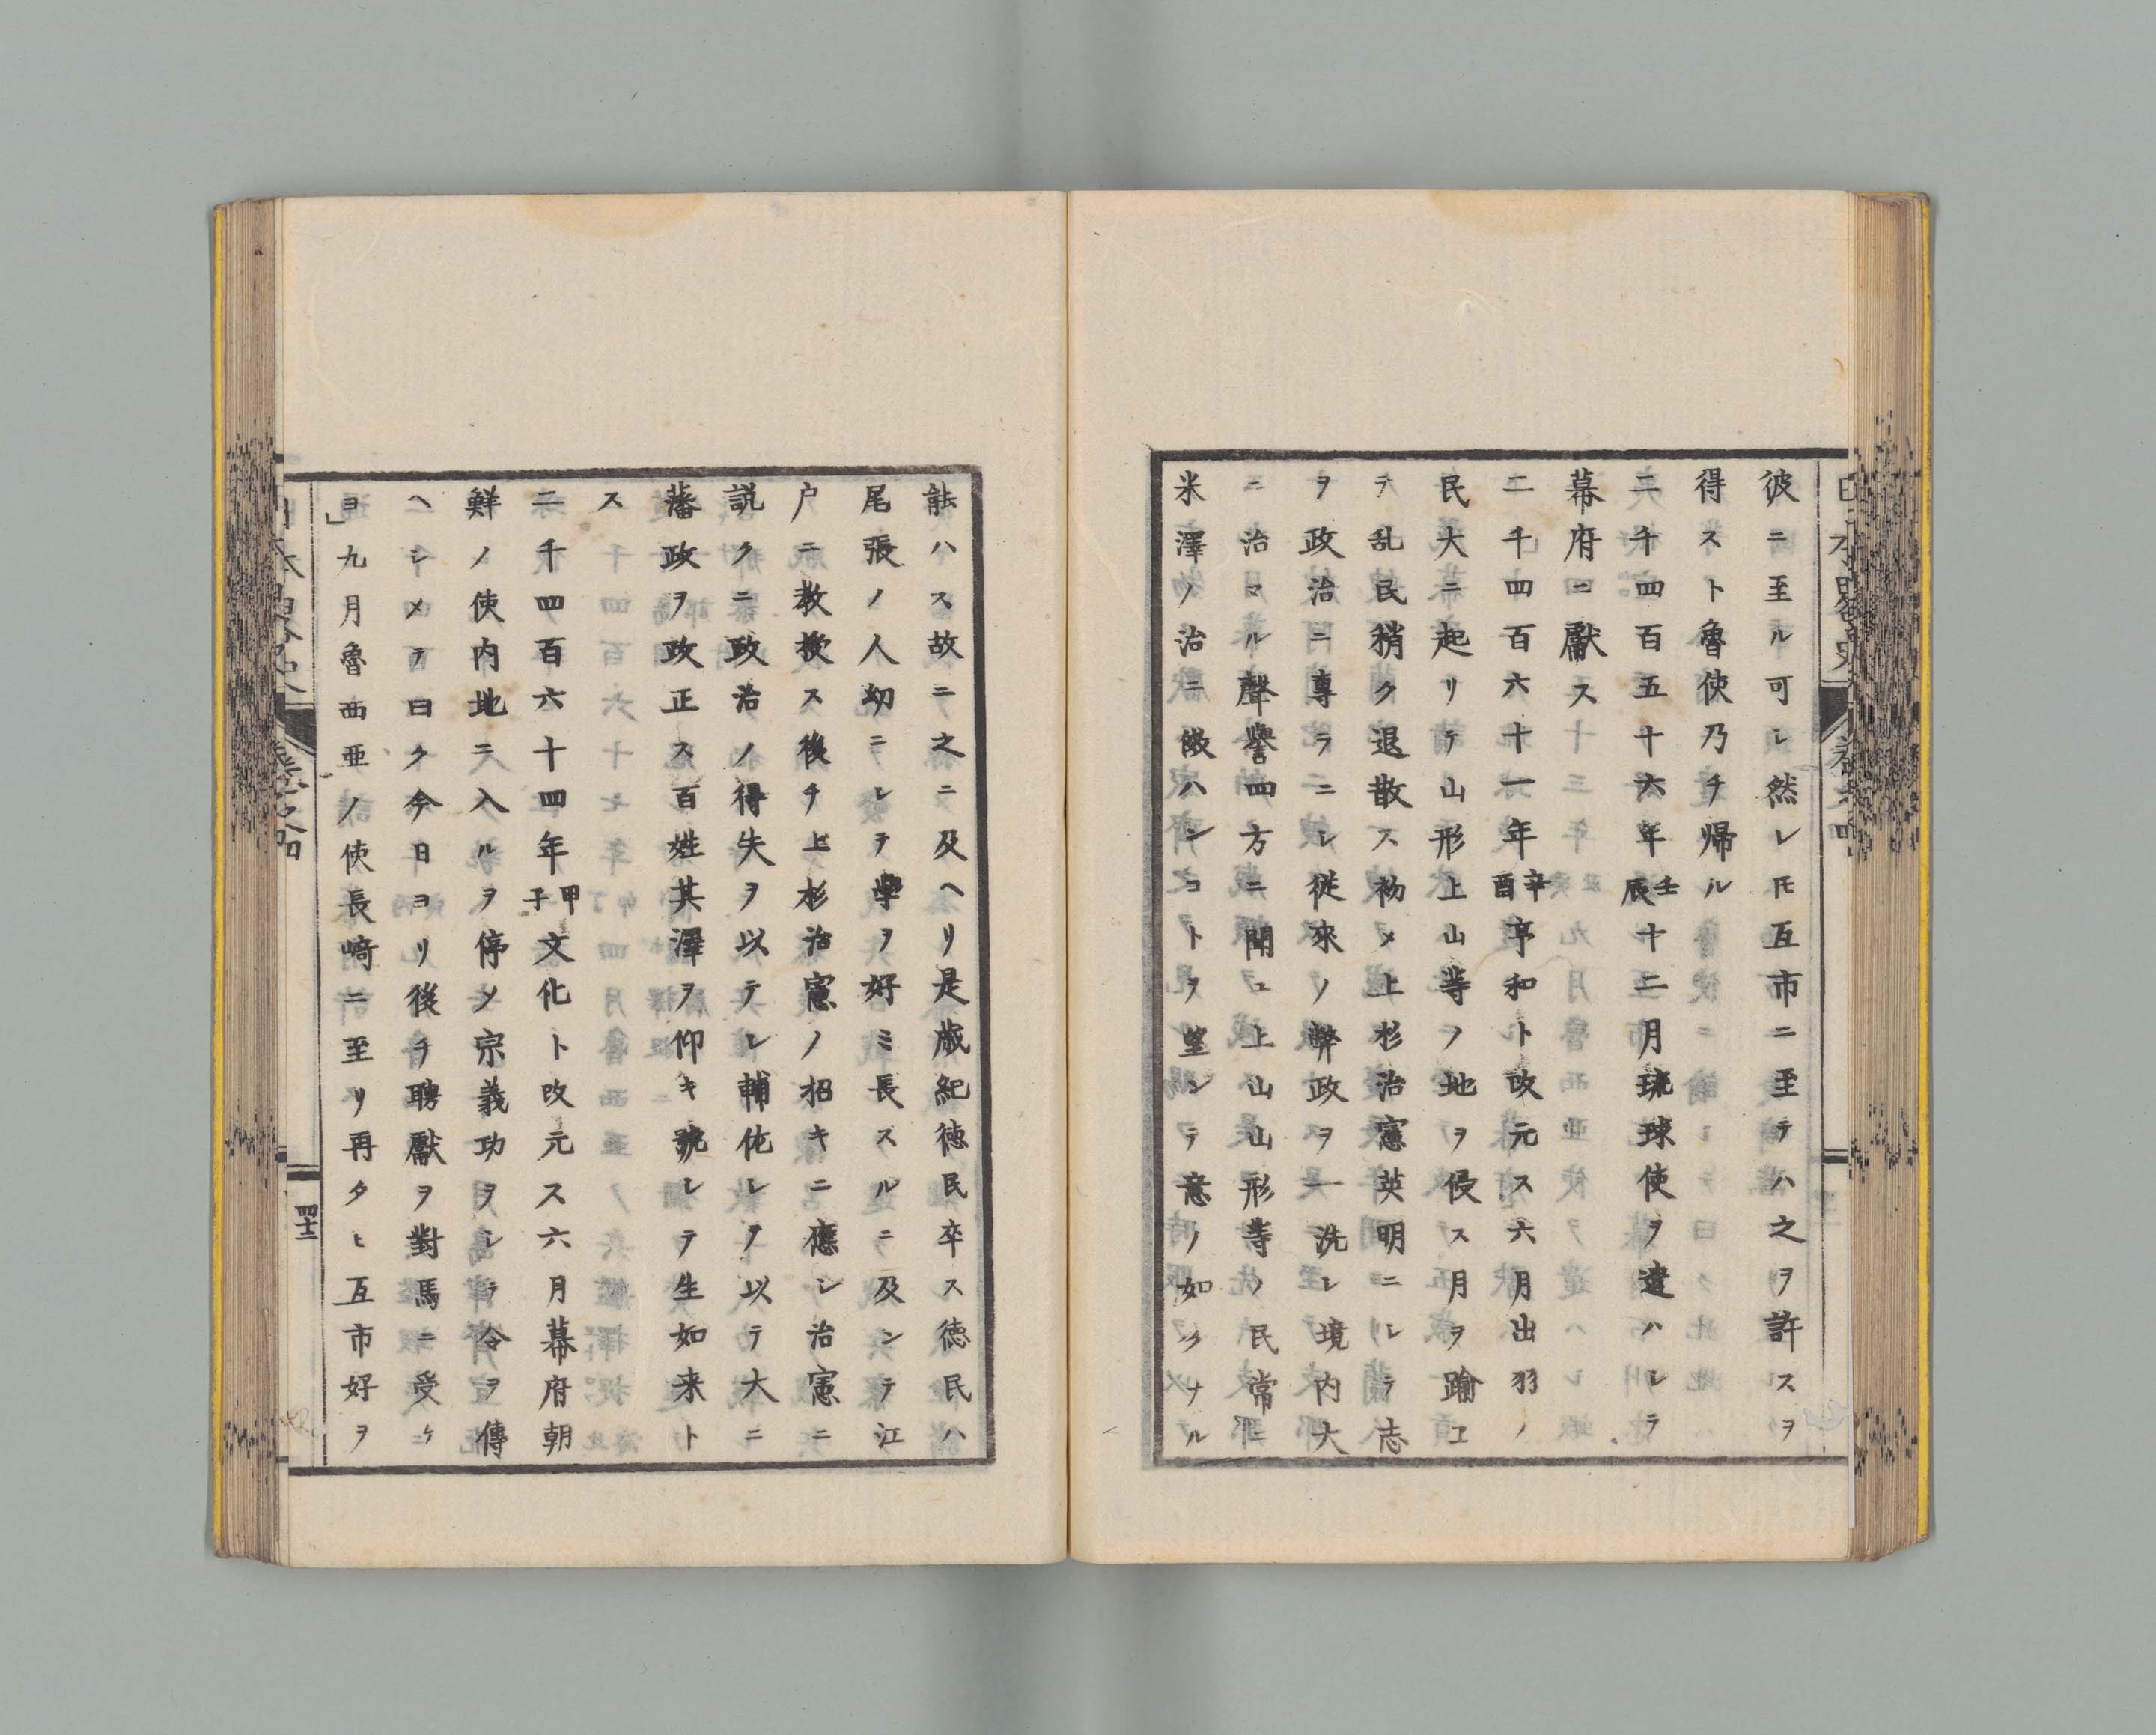 彼ニ至ル可シ然レ𪜈互市ニ至テハ之ヲ許スヲ
得スト魯使乃チ帰ル
二千四百五十六年壬辰十二月琉球使ヲ遣ハシテ
幕府ニ獻ス
二千四百六十一年辛酉享和ト改元ス六月出羽ノ
民大ニ起リテ山形上山等ノ地ヲ侵ス月ヲ踰エ
テ乱民稍ク退散ス初メ上杉治憲英明ニシテ志
ヲ政治ニ專ラニシ從來ノ弊政ヲ一洗シ境内大
ニ治マル聲譽四方ニ聞ユ上山山形等ノ民常ニ
米澤ノ治ニ傚ハンコトヲ望ンテ意ノ如クナル
能ハス故ニ之ニ及ヘリ是歳紀徳民卒ス徳民ハ
尾張ノ人幼ニシテ學ヲ好ミ長スルニ及ンテ江
户ニ教授ス後チ上杉治憲ノ招キニ應シ治憲ニ
説クニ政治ノ得失ヲ以テシ輔佐シヲ以テ大ニ
藩政ヲ改正ス百姓其澤ヲ仰キ號シテ生如来ト
ス
二千四百六十四年甲子文化ト改元ス六月幕府朝
鮮ノ使内地ニ入ルヲ停メ宗義功ヲシテ令ヲ傳
ヘシメテ曰ク今日ヨリ後チ聘獻ヲ對馬ニ受ケ
ヨ」九月魯西亜ノ使長崎ニ至リ再タヒ互市好ヲ
四十三